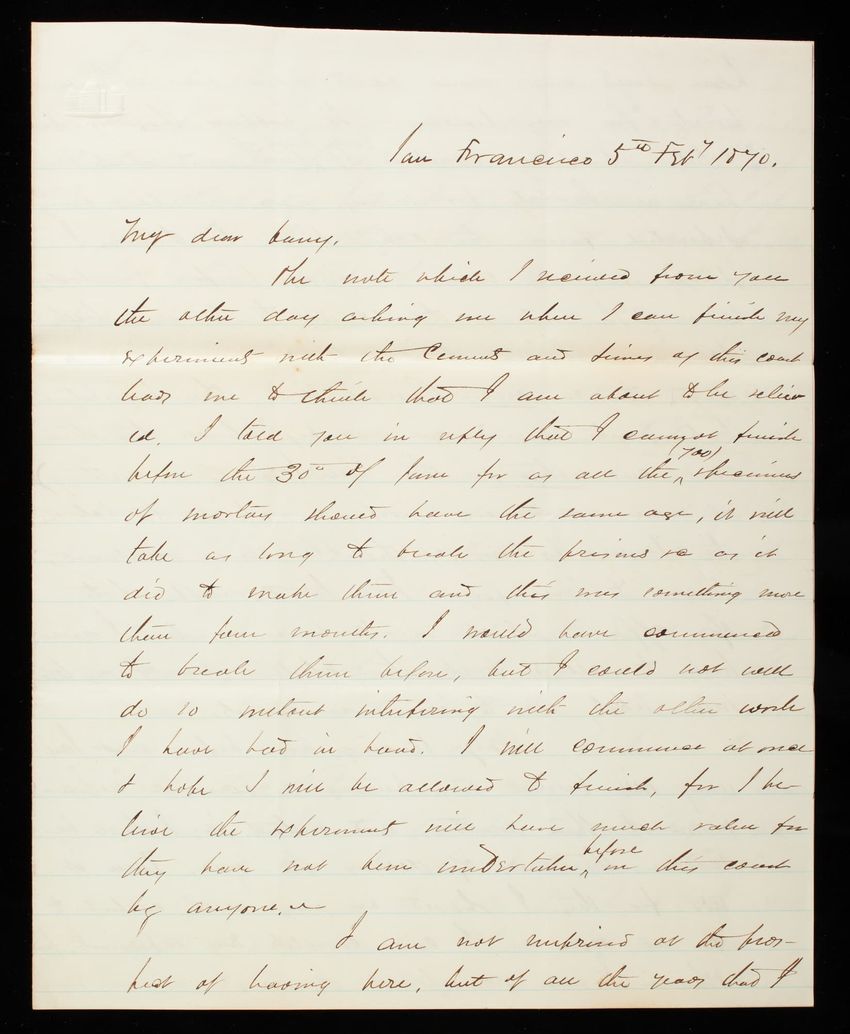 San Francisco 5th Feby 1870.
My dear Casey,
The note which I received from you
the other day asking me when I can finish my
experiments with the Cements and limes of this coast
leads me to think that I am about to be reliev
ed. I told you in reply that I cannot finish
before the 30th of June for as all the (700) specimens
of mortars should have the same age, it will
take as long to break the prisms &c as it
did to make them and this was something more
than four months. I would have commenced
to break them before, but I could not well
do so without interfering with the other work
I have had in hand. I will commence at once
& hope I will be allowed to finish, for I be-
lieve the experiments will have much value for
they have not been undertaken before on this coast
by anyone.
I am not surprised at the pros-
pect of leaving here, but of all the years that I